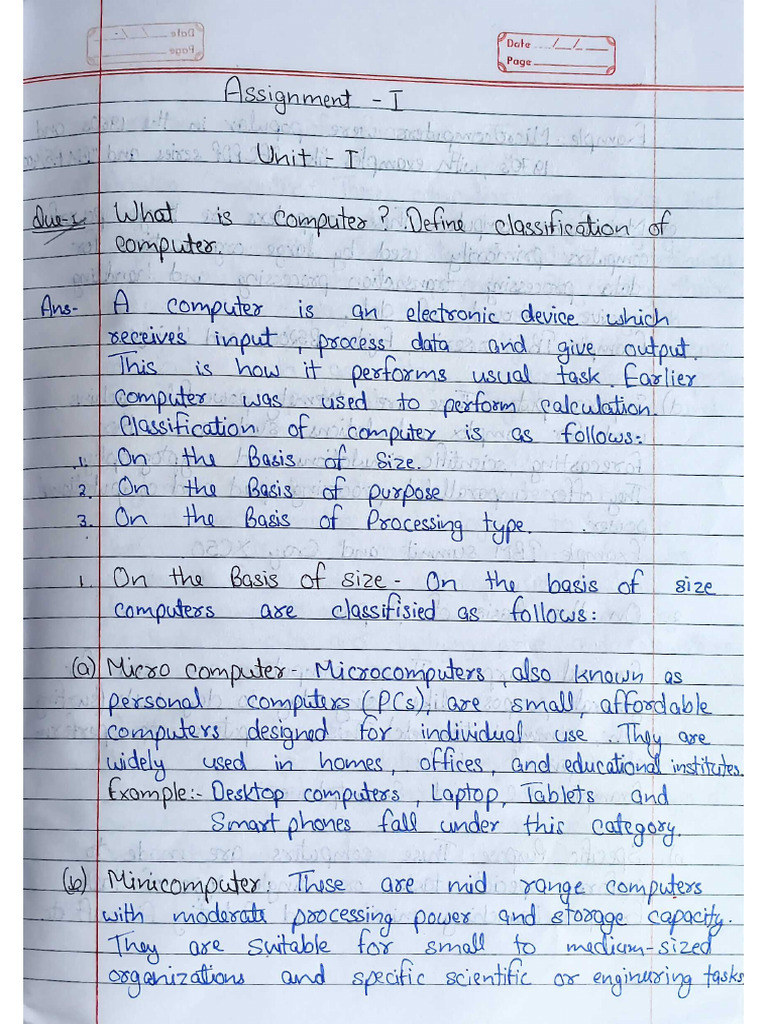 Date __/__/__
Page
Assignment - I
Unit - I
Que-1 What is computer? Define classification of
computer.
Ans- A computer is an electronic device which
receives input, process data and give output.
This is how it performs usual task. Earlier
computer was used to perform calculation.
Classification of computer is as follows:
1. On the Basis of Size.
2. On the Basis of purpose
3. On the Basis of Processing type.
1. On the Basis of size - On the basis of size
computers are classifisied as follows:
(a) Micro computer - Microcomputers, also known as
personal computers (PCs), are small, affordable
computers designed for individual use. They are
widely used in homes, offices, and educational institutes.
Example:- Desktop computers, Laptop, Tablets and
Smart phones fall under this category.
(b) Minicomputer: These are mid range computers
with moderate processing power and storage capacity.
They are suitable for small to medium-sized
organizations and specific scientific or enginuring tasks